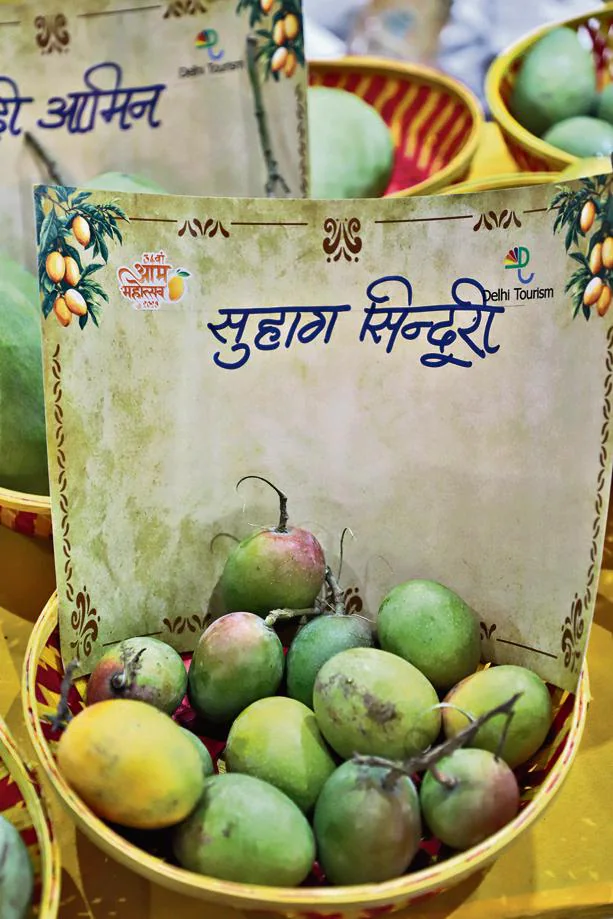 आमिन
Delhi Tourism
आम्र
महोत्सव
Delhi Tourism
सुहाग सिन्दूरी